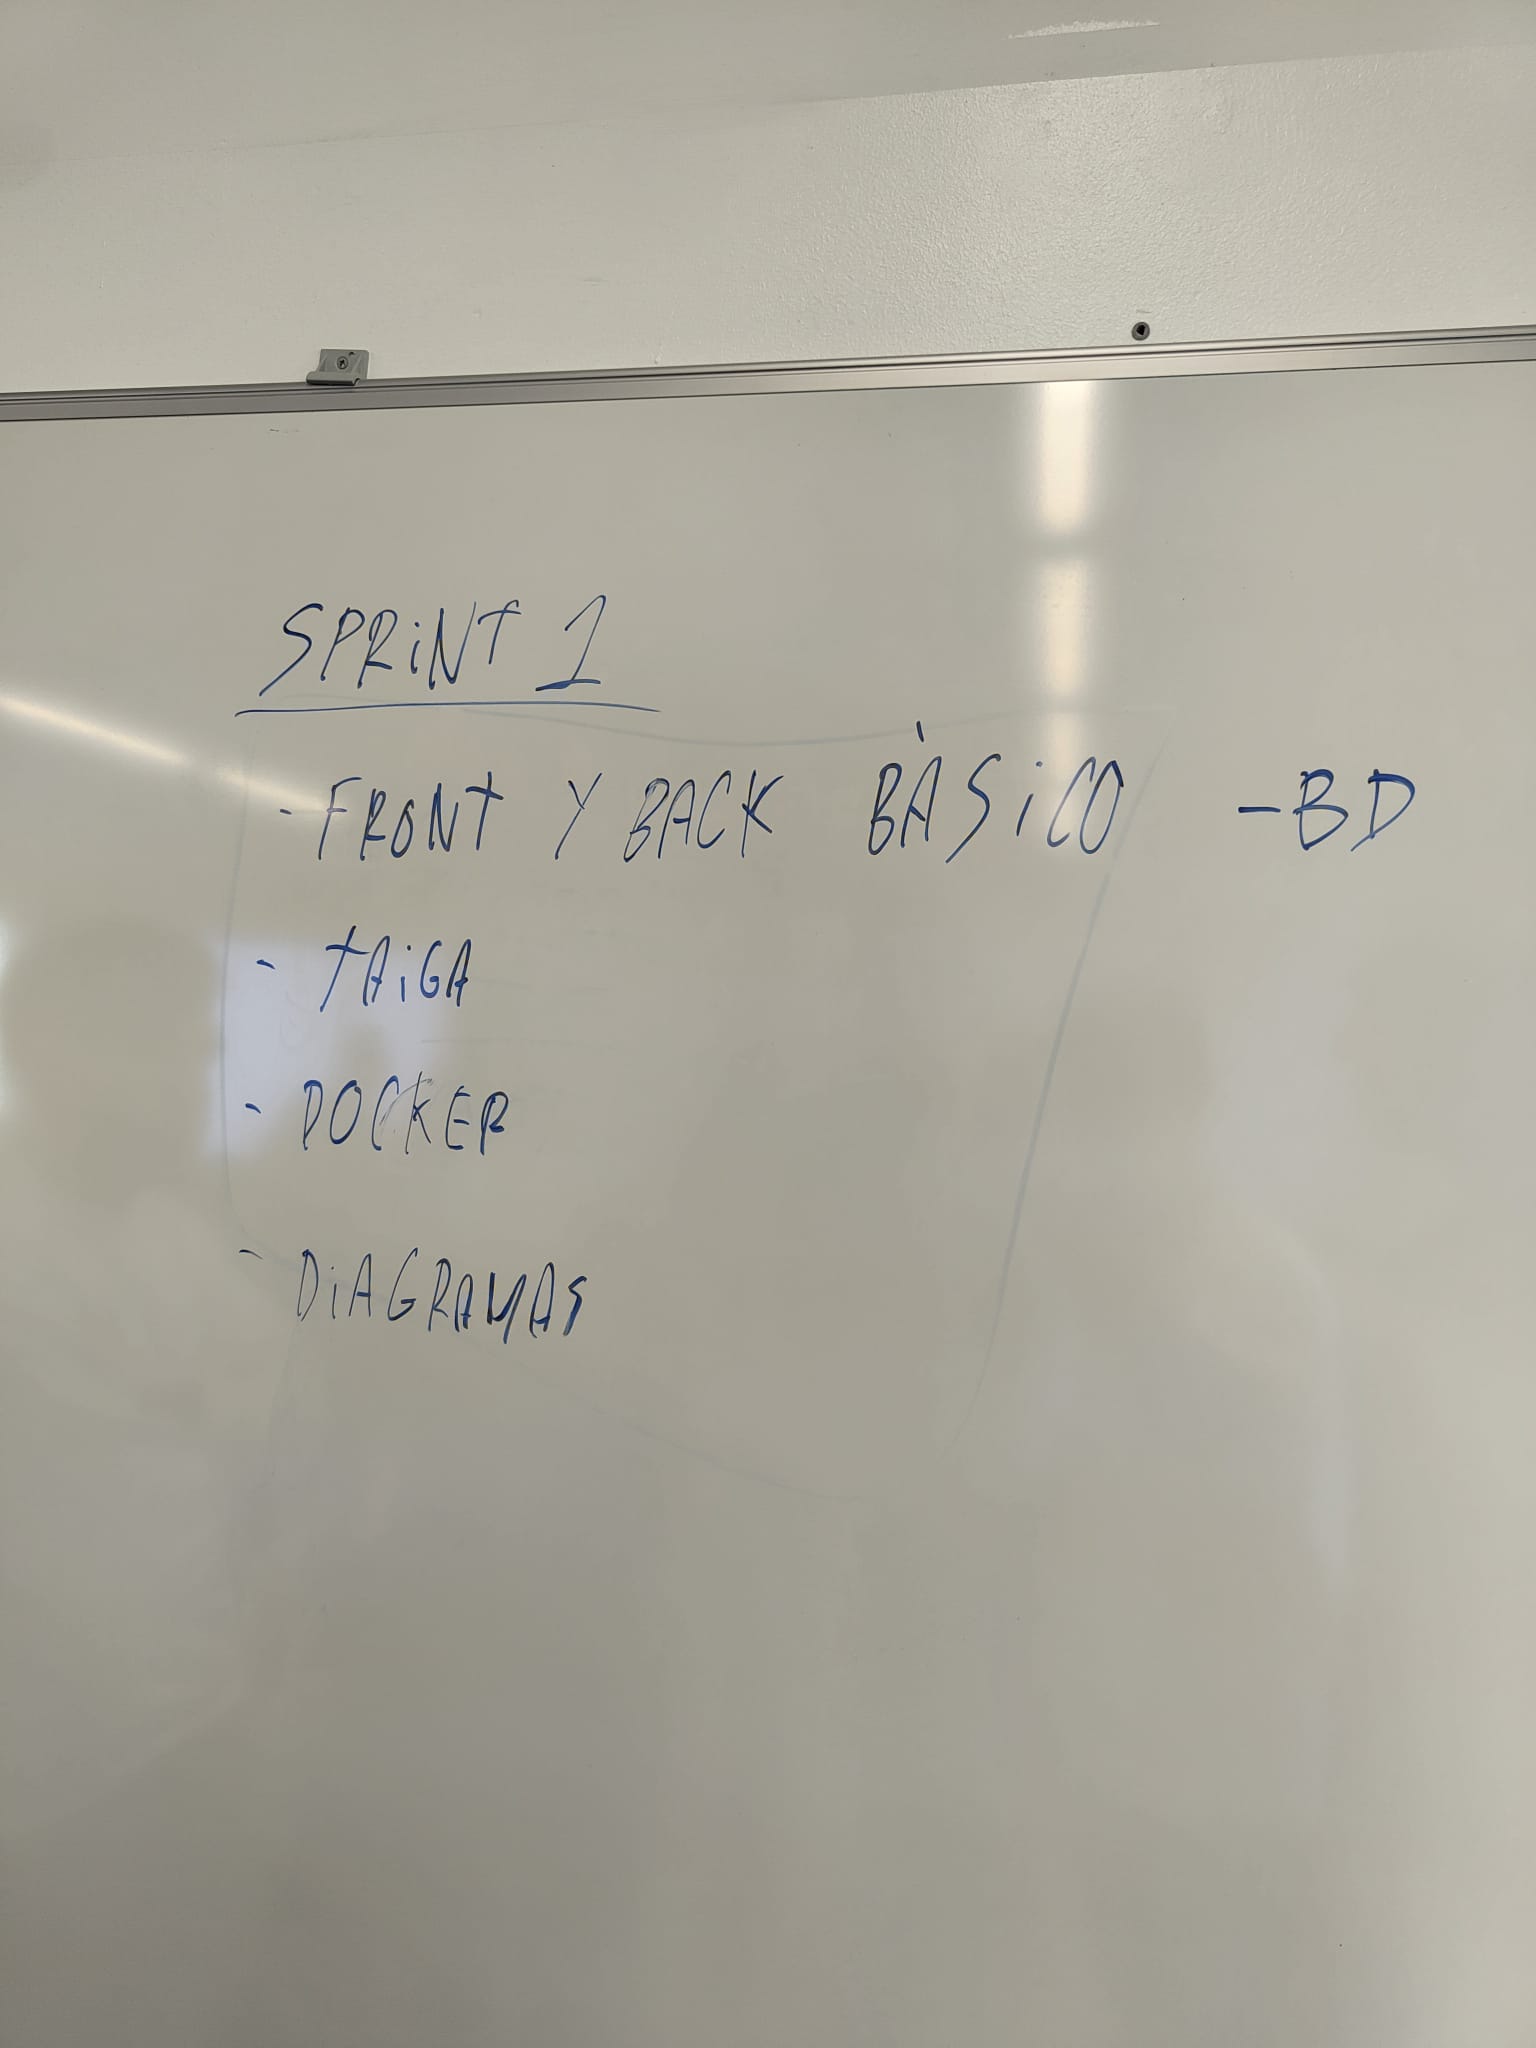 SPRiNT 1
- FRONT Y BACK BÁSiCO - BD
- TAiGA
- DOCKER
- DiAGRAMAS